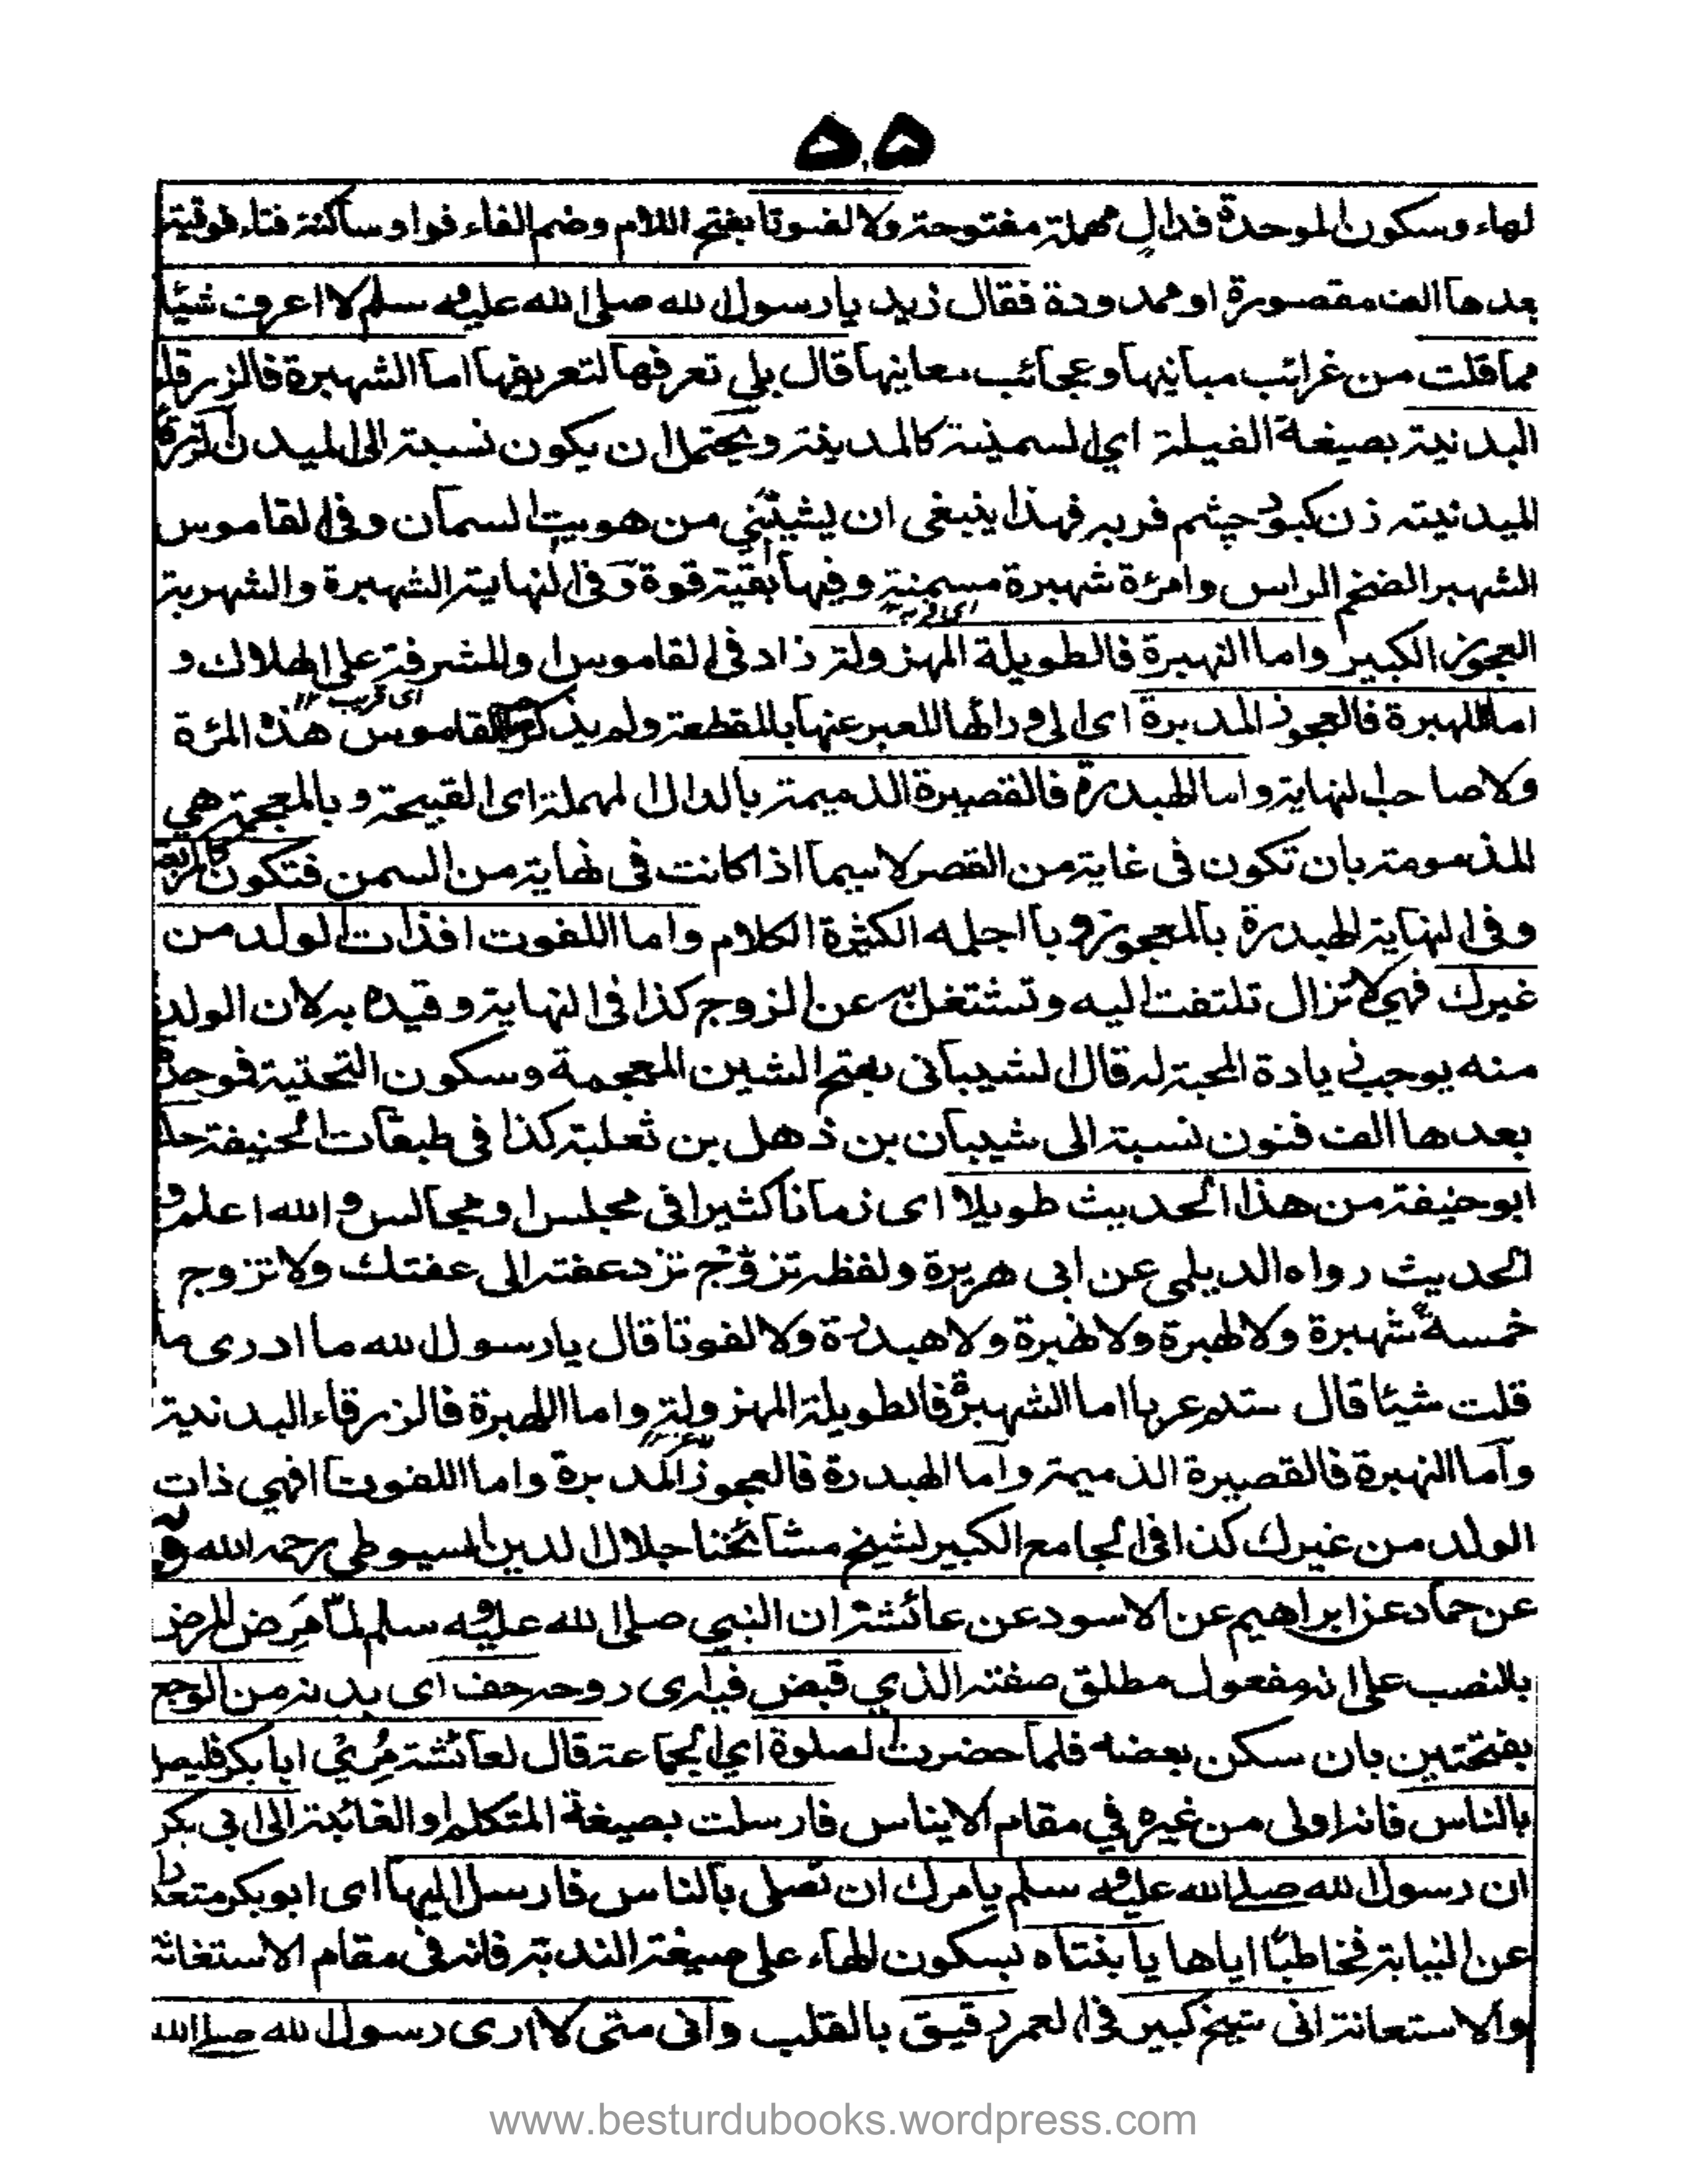 ۵۵
لهاء وسكون الموحدة فدال مهملة مفتوحة ولا لفوتا بفتح اللام وضم الفاء فواو ساكنة فتاء فوقية
بعدها الف مقصورة او ممدودة فقال زيد يا رسول الله صلى الله عليه وسلم لا اعرف شيئا
مما قلت من غرائب مبانيها وعجائب معانيها قال بلى تعرفها لتعريفها اما الشهبرة فالزرقاء
البدنية بصيغة الفيلة اي السمينة كالمدينة ويحتمل ان يكون نسبة الى الميدن
الميدنيته زن كبود چشم فربه فهذا ينبغى ان من السمان وفي القاموس
الشهبر الضخم الراس وامرءة شهبرة مسمنة وفيها بقية قوة وفي النهاية الشهبرة والشهربة
العجوز الكبير واما النهبرة فالطويلة المهزولة زاد في القاموس او المشرفة على الهلاك و
اى قريب ١٢
اما اللهبرة فالعجوز المدبرة اى الى ورائها المعبر عنها بالمقطعة ولم يذكر القاموس هذه المرة
ولا صاحب النهاية واما الهبدرة فالقصيرة الدميمة بالدال المهملة اى القبيحة وبالمعجمة هي
المذمومة بان تكون فى غاية من القصر لا سيما اذا كانت فى نهاية من السمن فتكون
وفي النهاية الهبدرة بالعجوز وبا الكثيرة الكلام واما اللفوت افذات الولد من
غيرك فهي لا تزال تلتفت اليه وتشتغل به عن الزوج كذا في النهاية وقيده به لان الولد
منه يوجب زيادة المحبة له قال الشيبانى بفتح الشين المعجمة وسكون التحتية فوحدة
بعدها الف فنون نسبة الى شيبان بن ذهل بن ثعلبة كذا فى طبقات الحنيفة حدث
ابو حنيفة من هذا الحديث طويلا اى زمانا كثيرا فى مجلس او مجالس والله اعلم و
الحديث رواه الديلمى عن ابى هريرة ولفظه تزوج تزد عفته الى عفتك ولا تزوج
خمسة شهبرة ولا لهبرة ولا نهبرة ولا هبدرة ولا لفوتا قال يا رسول الله ما ادرى ما
قلت شيئا قال عربا اما الشهبرة فالطويلة المهزولة واما اللهبرة فالزرقاء البدندية
واما النهبرة فالقصيرة الذميمة واما الهبدرة فالعجوز المدبرة واما اللفوت افهي ذات
الولد من غيرك كذا في الجامع الكبير لشيخ مشائخنا جلال الدين السيوطى رحمه الله وبه
عن حماد عن ابراهيم عن الاسود عن عائشة ان النبي صلى الله عليه وسلم لما مرض المرض
بالنصب على انه مفعول مطلق صفته الذي قبض فيه اى روحه خف اى بدنه من الوجع
بفتحتين بان سكن بعضه فلما حضرت الصلوة اي الجماعة قال لعائشة مُرِيْ ابا بكر فليصل
بالناس فانه اولى من غيره في مقام الايناس فارسلت بصيغة المتكلم او الغائبة الى ابي بكر
ان رسول الله صلى الله عليه وسلم يامرك ان تصلى بالناس فارسل اليها اى ابو بكر متعذرا
عن النيابة مخاطبا اياها يا بنتاه بسكون الهاء على صيغة الندبة فانه فى مقام الاستغاثة
والاستعانة انى شيخ كبير في العمر رقيق بالقلب وانى متى لا ارى رسول الله صلى الله
www.besturdubooks.wordpress.com